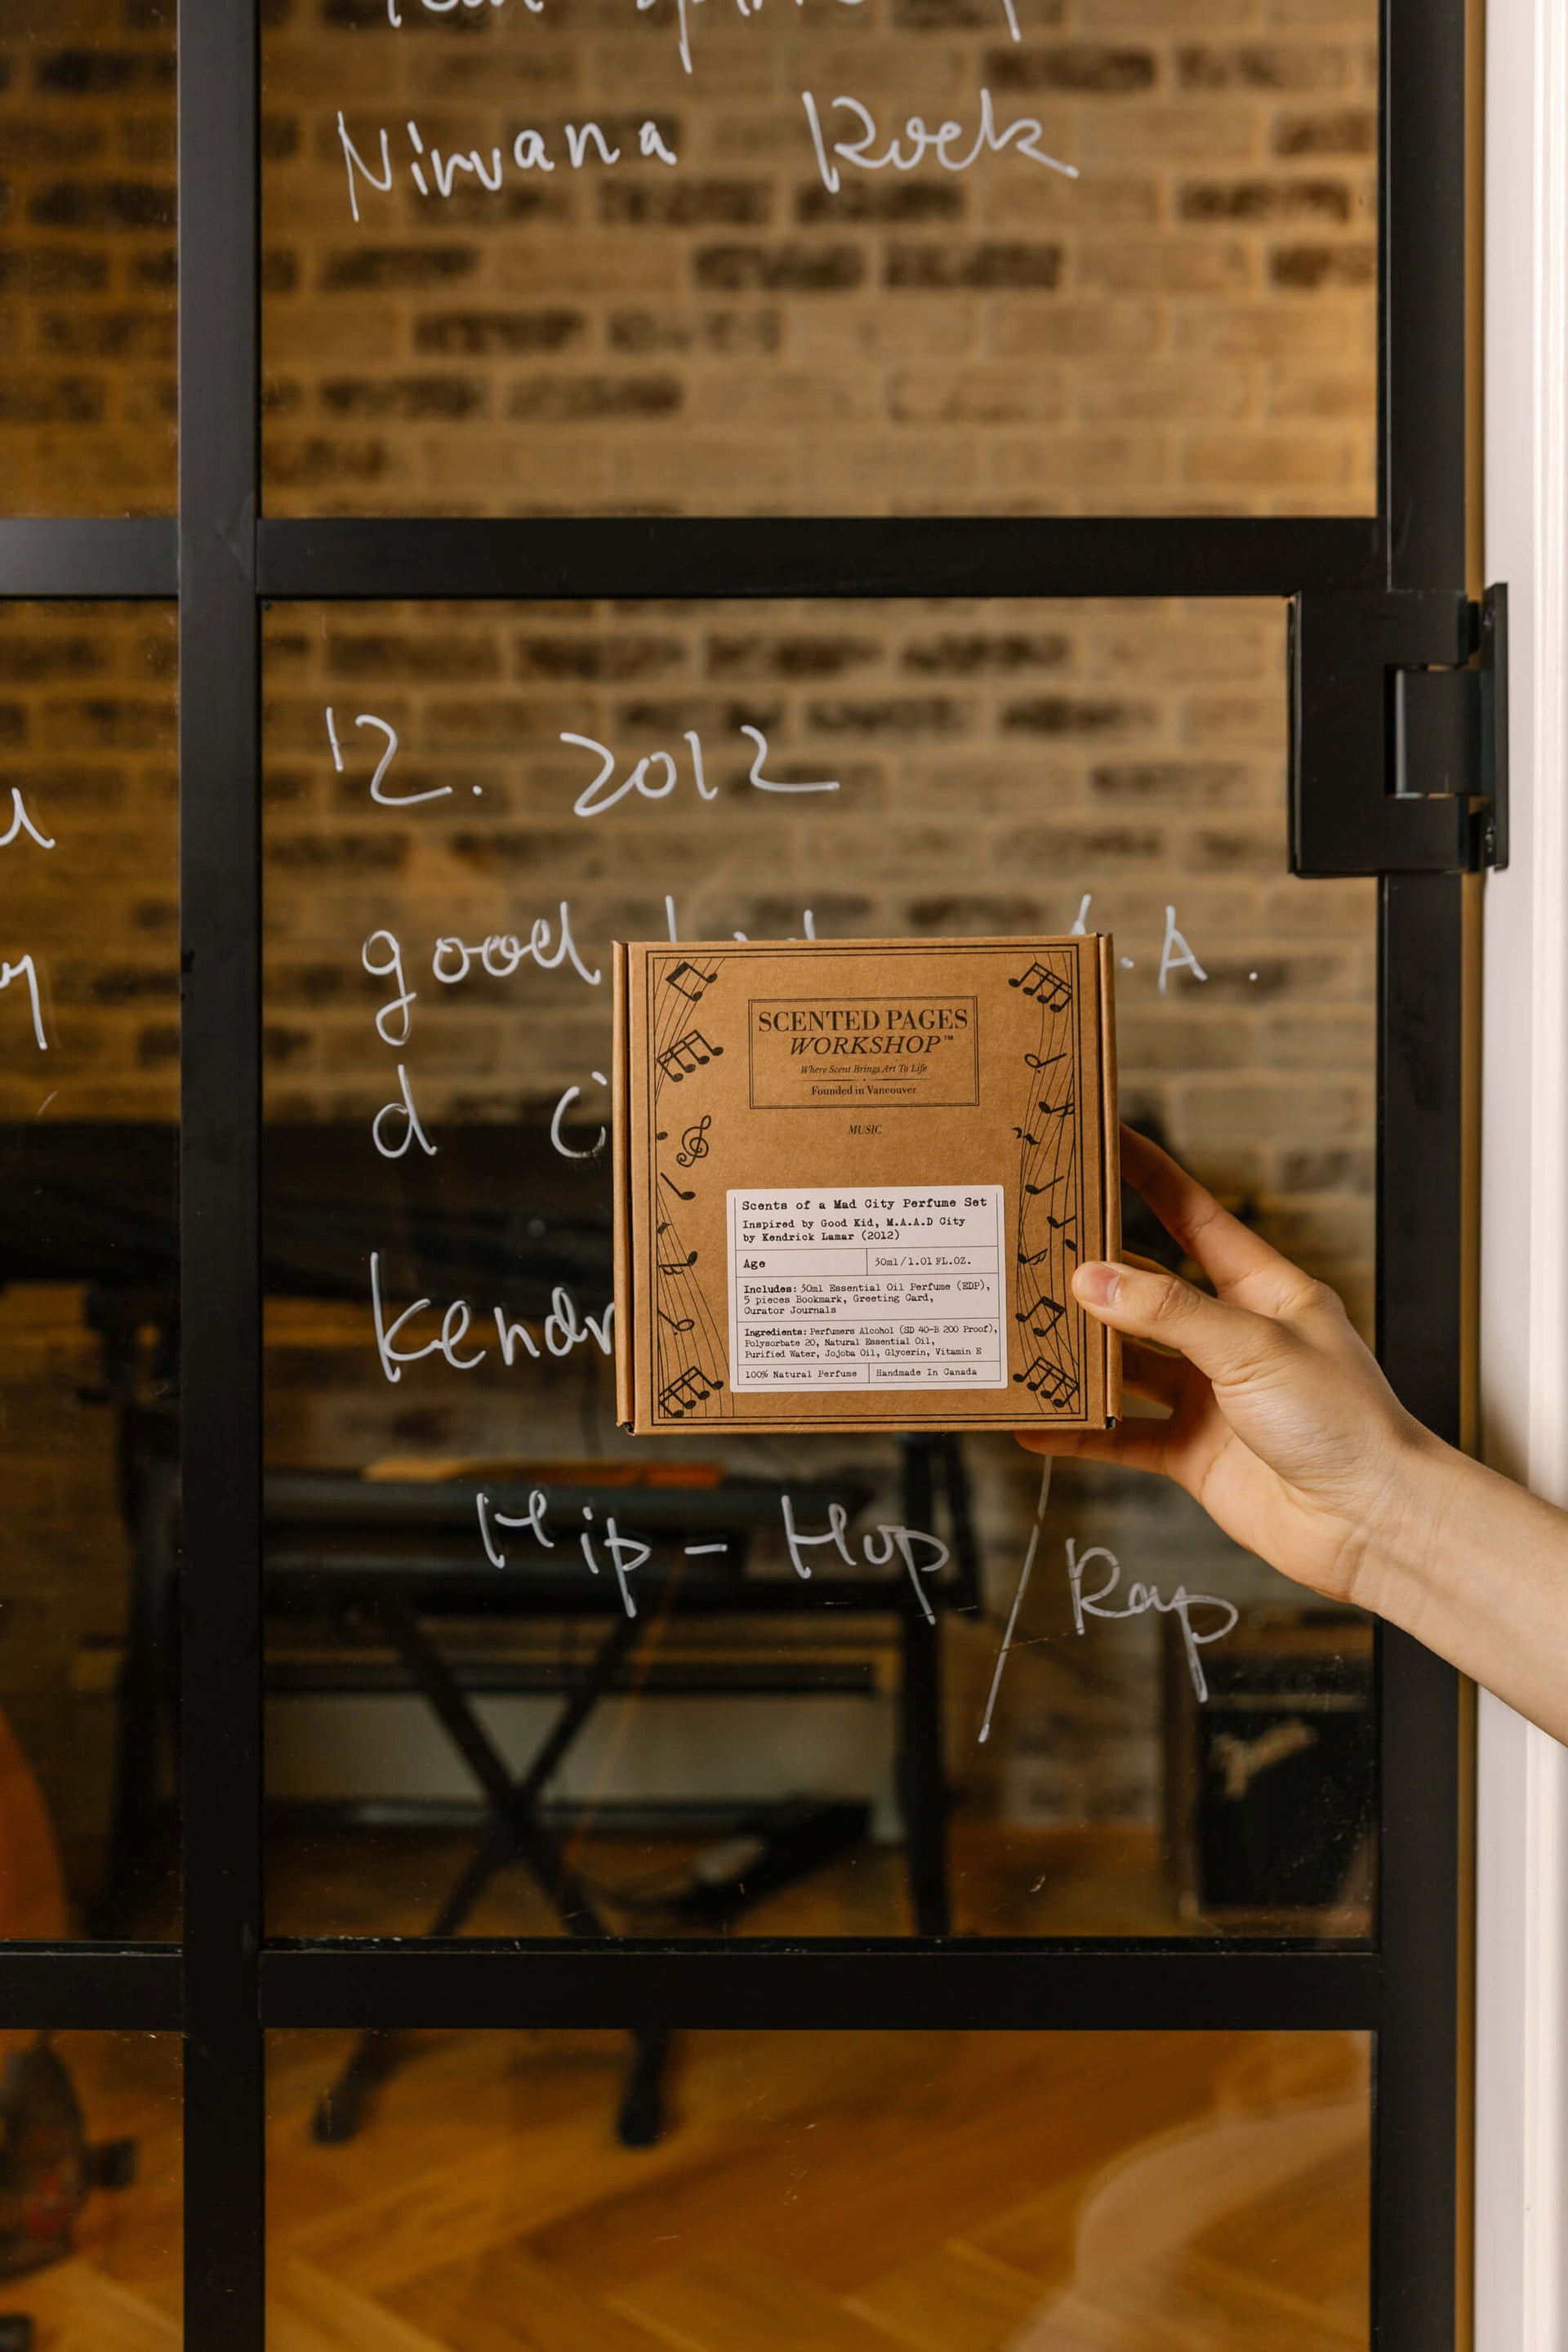 Nirvana Rock
12. 2012
good
.A.
d c
Kendr
Hip-Hop / Rap
SCENTED PAGES
WORKSHOP™
Where Scent Brings Art To Life
Founded in Vancouver
MUSIC
Scents of a Mad City Perfume Set
Inspired by Good Kid, M.A.A.D City
by Kendrick Lamar (2012)
Age
30ml/1.01 FL.OZ.
Includes: 30ml Essential Oil Perfume (EDP),
5 pieces Bookmark, Greeting Card,
Curator Journals
Ingredients: Perfumers Alcohol (SD 40-B 200 Proof),
Polysorbate 20, Natural Essential Oil,
Purified Water, Jojoba Oil, Glycerin, Vitamin E
100% Natural Perfume
Handmade In Canada